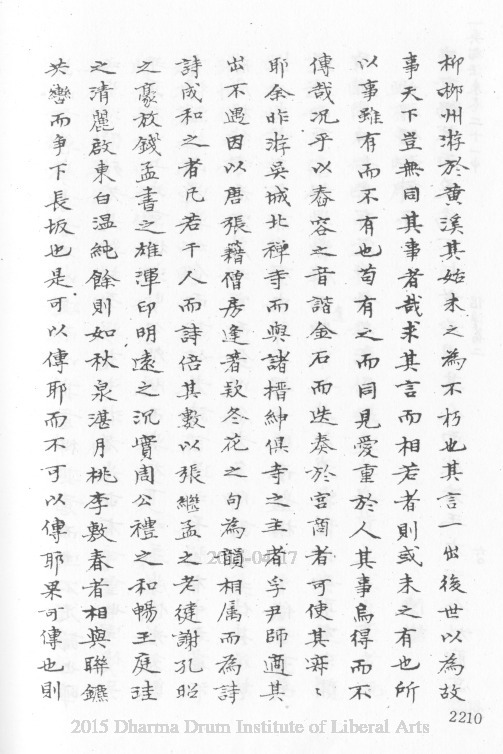 柳栁州游於黄溪其始未之為不朽也其言一出後世以為故
事天下豈無同其事者哉求其言而相若者則或未之有也所
以事雖有而不有也苟有之而同見愛重於人其事烏得而不
傳哉况乎以舂容之音諧金石而迭奏於宮商者可使其寥〻
耶余昨游吳城北禪寺而與諸搢紳俱寺之主者孚尹師適其
出不遇因以唐張籍僧房逢著欵冬花之句為韻相属而為詩
詩成和之者凡若干人而詩倍其數以張繼孟之老健謝孔昭
之豪放錢孟書之雄渾印明遠之沉實周公禮之和暢王庭珪
之清麗啟東白温純餘則如秋泉湛月桃李敷春者相與聯鑣
共轡而争下長坂也是可以傳耶而不可以傳耶果可傳也則
2210
2015 Dharma Drum Institute of Liberal Arts